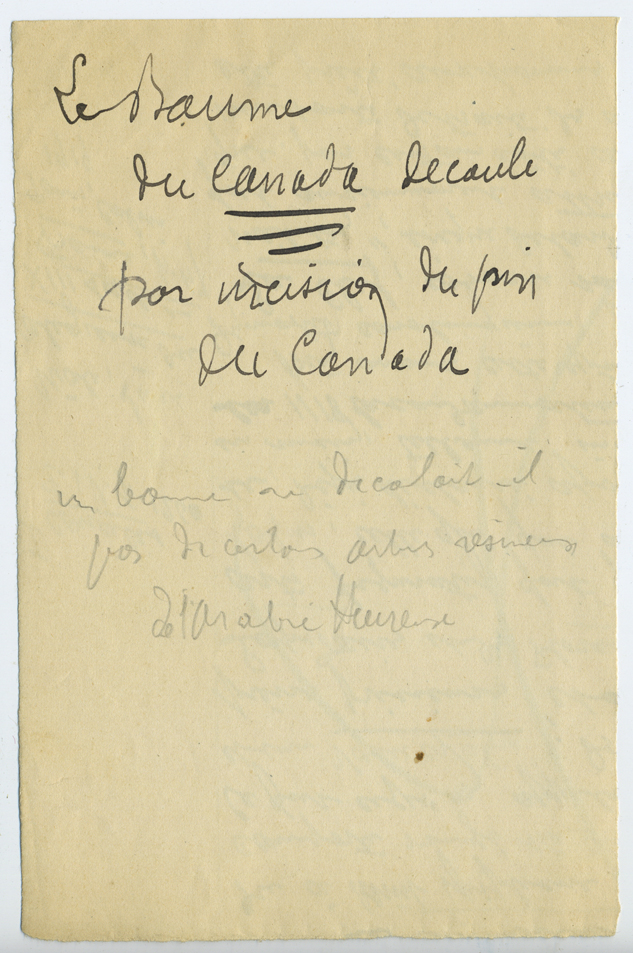 Le Baume
du Canada decoule
par incision du pin
du Canada
un baume ne decoulait-il
pas de certains arbres résineux
de l'Arabie Heureuse